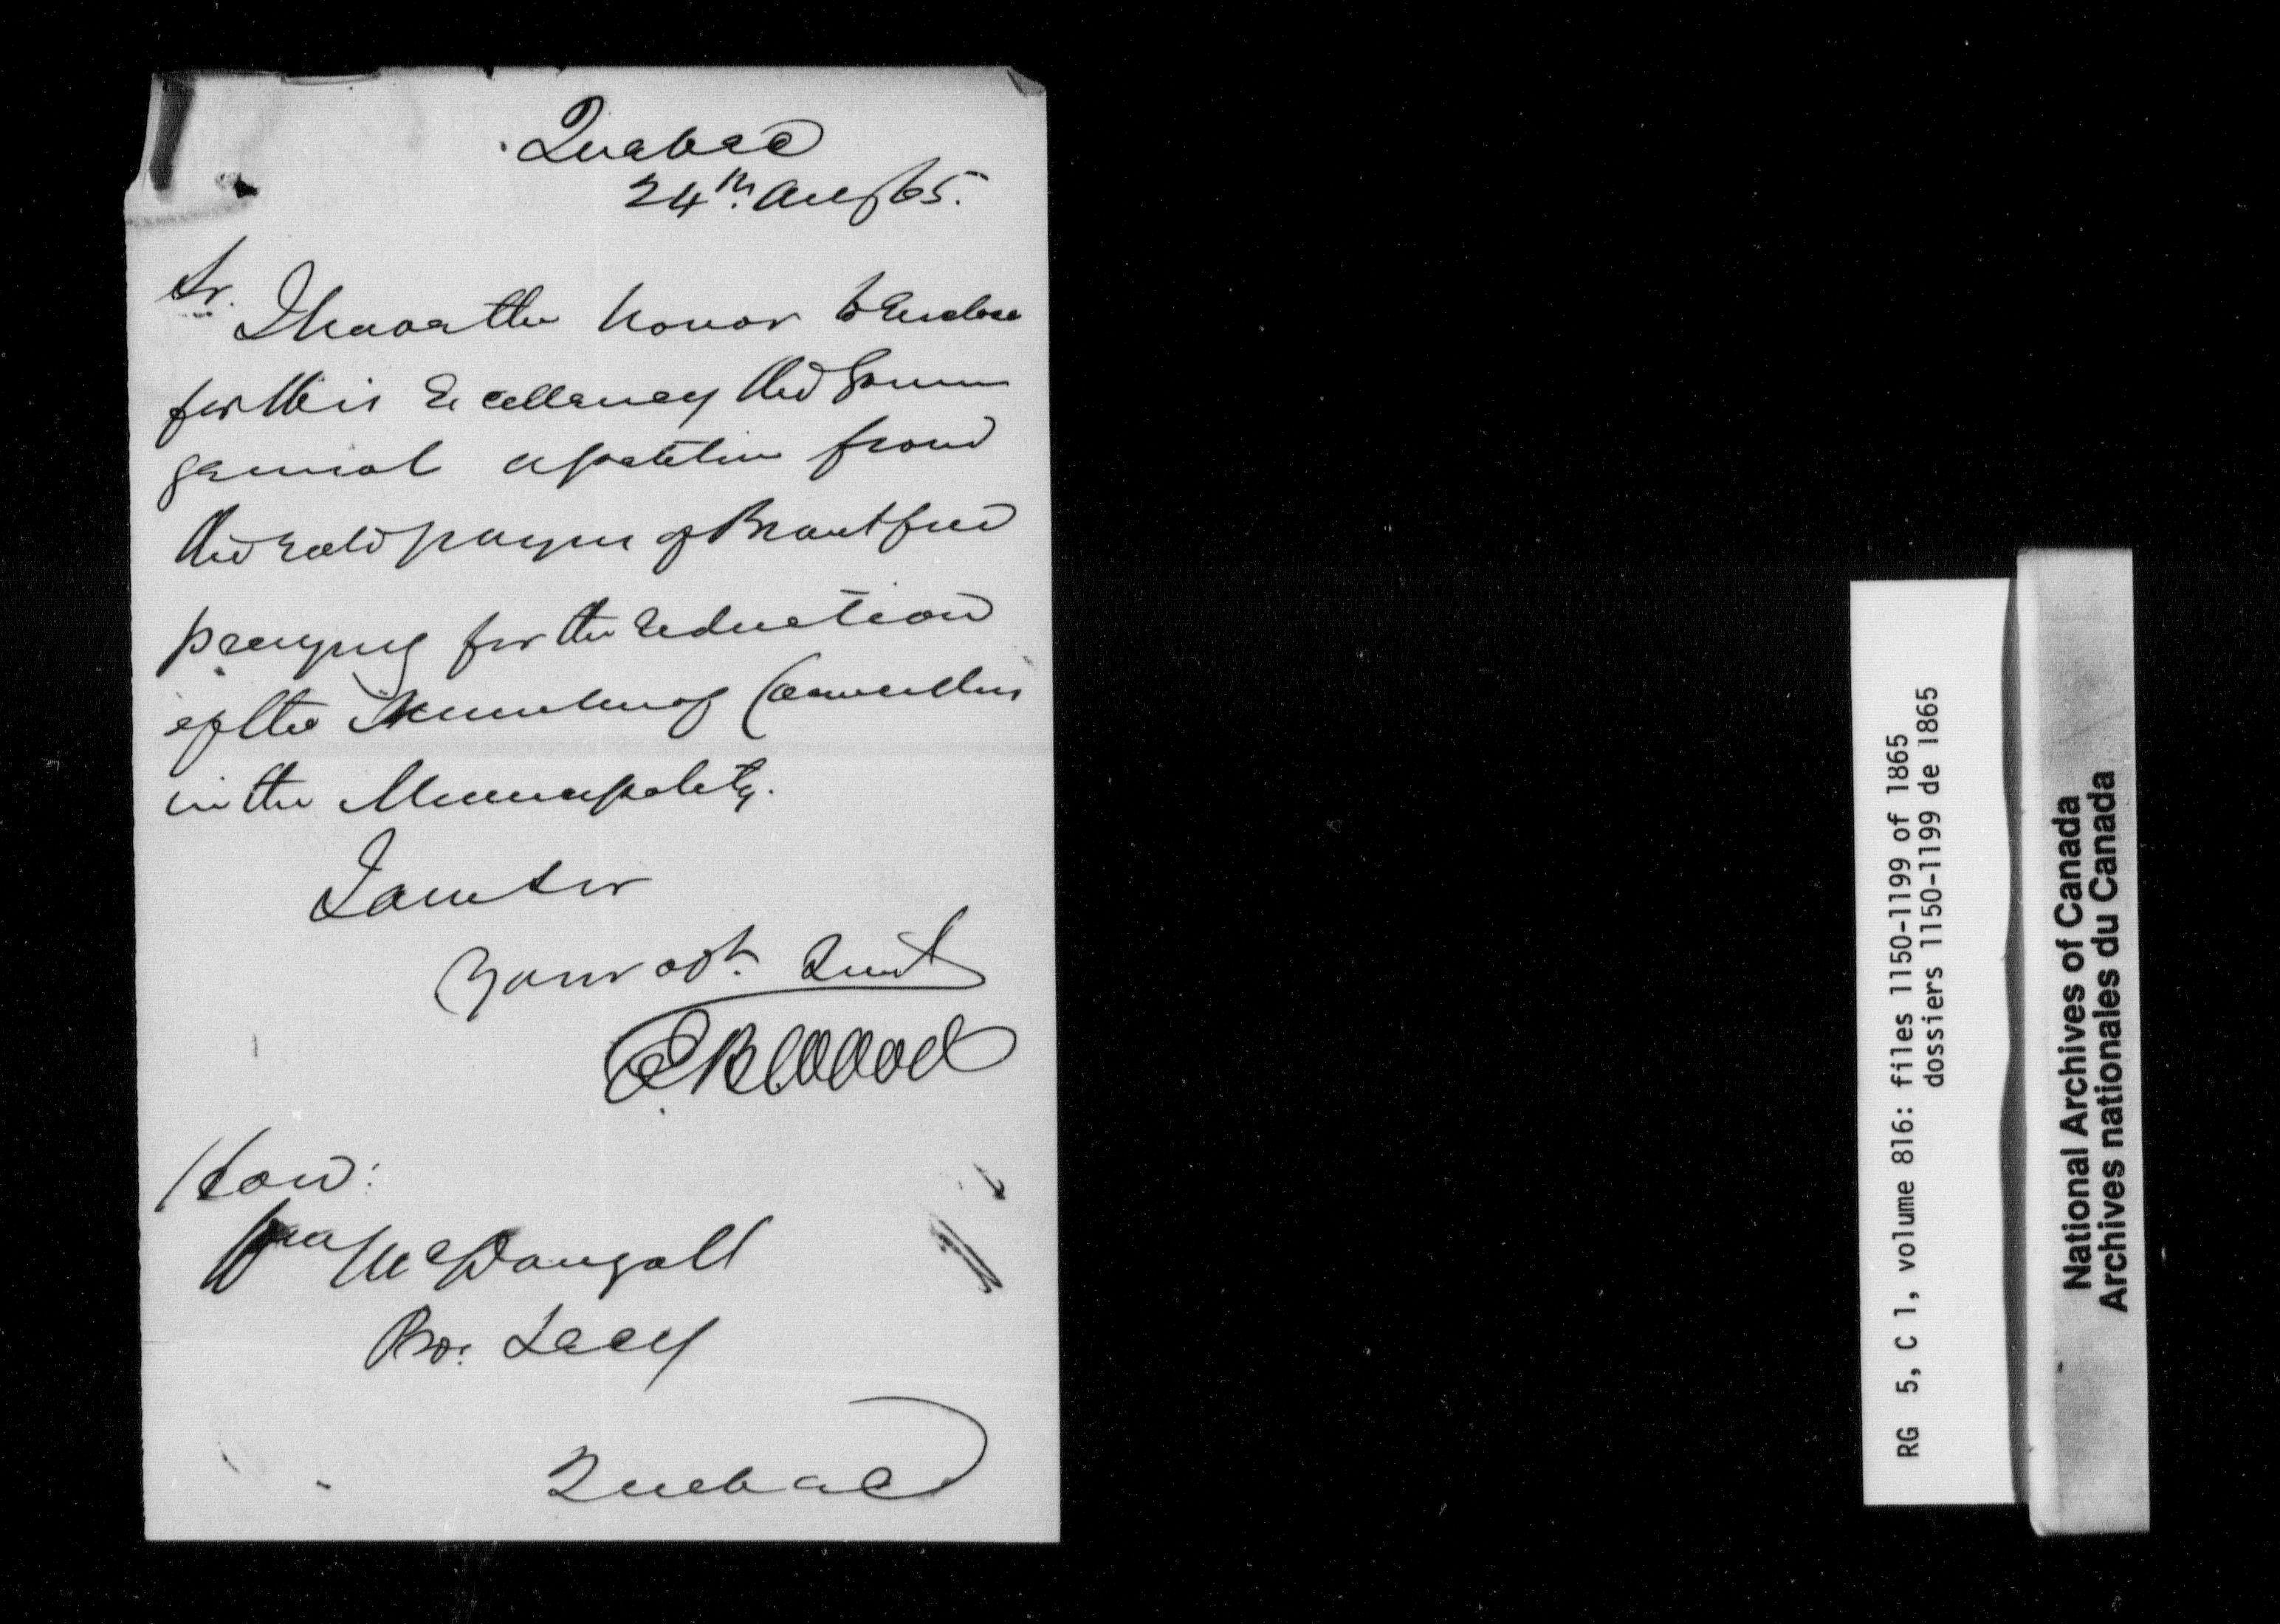 Quebec
24th. Aug 65.
Sr.
I have the honor to enclose
for His Excellency the Govern
general a petition from
the rate payers of Brantford
praying for the reduction
of the number of Councillors
in the Municipality.
I am Sir
Your obt. Servt
E B Wood
Hon:
McDougall
Pro: Secy
Quebec
RG 5, C 1, volume 816: files 1150-1199 of 1865
dossiers 1150-1199 de 1865
National Archives of Canada
Archives nationales du Canada